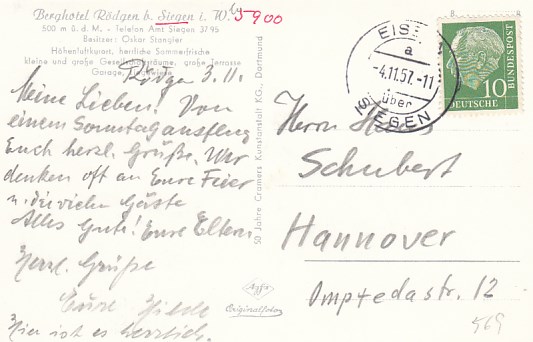 Berghotel Rödgen b. Siegen i. W.
5900
500 m ü. d. M. - Telefon Amt Siegen 3795
Besitzer: Oskar Stangier
Höhenluftkurort, herrliche Sommerfrische
kleine und große Gesellschaftsräume, große Terrasse
Garage,
Rödgen 3.11.
Meine Lieben! Von
einem Sonntagausflug
Euch herzl. Grüße. Wir
denken oft an Eure Feier
u. die vielen Gäste
Alles Gute! Eure Eltern.
Herzl. Grüße
Eure
Hier ist es herrlich.
50 Jahre Cramers Kunstanstalt KG., Dortmund
Agfa
Originalfoto
EISE
a
-4.11.57.-11
über
SIEGEN
10
DEUTSCHE
BUNDESPOST
Herrn
Schubert
Hannover
Omptedastr. 12
569